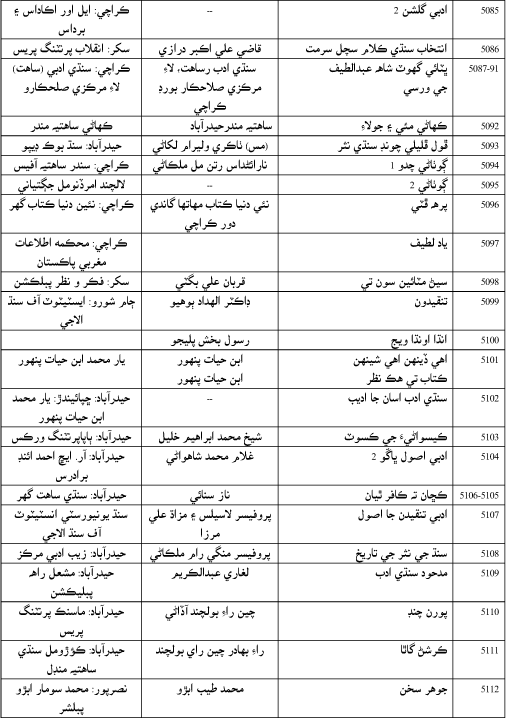 5085 ادبي گلشن 2 -- ڪراچي: ايل اور اڪاداس ۽
برداس
5086 انتخاب سنڌي ڪلام سچل سرمت قاضي علي اڪبر درازي سکر: انقلاب پرنٽنگ پريس
5087-91 ڀٽائي گھوٽ شاھ عبدالطيف سنڌي ادب رساهت، لاءِ ڪراچي: سنڌي ادبي (ساهت)
جي ورسي مرڪزي صلاحڪار بورڊ لاءِ مرڪزي صلحڪارو
ڪراچي
5092 ڪھاڻي مئي ۽ جولاءِ ساهتيہ مندرحيدرآباد ڪھاڻي ساهتيہ مندر
5093 قول قليلي چونڊ سنڌي نثر (مس) ٺاڪري وليرام لکاڻي حيدرآباد: سنڌ بوڪ ڊيپو
5094 ڳوٺاڻي چدو 1 نارائڻداس رتن مل ملڪاڻي ڪراچي: سندر ساهتيہ آفيس
5095 ڳوٺاڻي 2 -- لالچند امرڏنومل جڳتياڻي
5096 پرھ ڦٽي نئي دنيا ڪتاب مهاتها گاندي ڪراچي: نئين دنيا ڪتاب گھر
دور ڪراچي
5097 ياد لطيف ڪراچي: محڪمه اطلاعات
مغربي پاڪستان
5098 سيڻ مٽائين سون تي قربان علي بگٽي سکر: فڪر و نظر پبلڪشن
5099 تنقيدون ڊاڪٽر الهداد ٻوهيو ڄام شورو: ايسٽيٽوٽ آف سنڌ
الاجي
5100 انڌا اونڌا ويڄ رسول بخش پليجو
5101 اهي ڏينهن اهي شينهن ابن حيات پنهور يار محمد ابن حيات پنهور
ڪتاب تي هڪ نظر ابن حيات پنهور
5102 سنڌي ادب اسان جا اديب -- حيدرآباد: ڇپائيندڙ: يار محمد
ابن حيات پنهور
5103 ڪيسواڻيءَ جي ڪسوٽ شيخ محمد ابراهيم خليل حيدرآباد: پاپاپرنٽنگ ورڪس
5104 ادبي اصول ڀاڱو 2 غلام محمد شاهواڻي حيدرآباد: آر. ايڇ احمد ائنڊ
برادرس
5106-5105 ڪڃان تہ ڪافر ٿيان ناز سنائي حيدرآباد: سنڌي ساهت گھر
5107 ادبي تنقيدن جا اصول پروفيسر لاسيلس ۽ مزاة علي سنڌ يونيورسٽي انسٽيٽوٽ
مرزا آف سنڌ الاجي
5108 سنڌ جي نثر جي تاريخ پروفيسر منگي رام ملڪاڻي حيدرآباد: زيب ادبي مرڪز
5109 مدحود سنڌي ادب لغاري عبدالڪريم حيدرآباد: مشعل راھ
پبليڪشن
5110 پورن چند چين راءِ ٻولچند آڏاڻي حيدرآباد: ماسنڪ پرنٽنگ
پريس
5111 ڪرشڻ گاٿا راءِ بهادر چين راي ٻولچند حيدرآباد: ڪؤڙومل سنڌي
ساهتيہ منڊل
5112 جوهر سخن محمد طيب ابڙو نصرپور: محمد سومار ابڙو
پبلشر